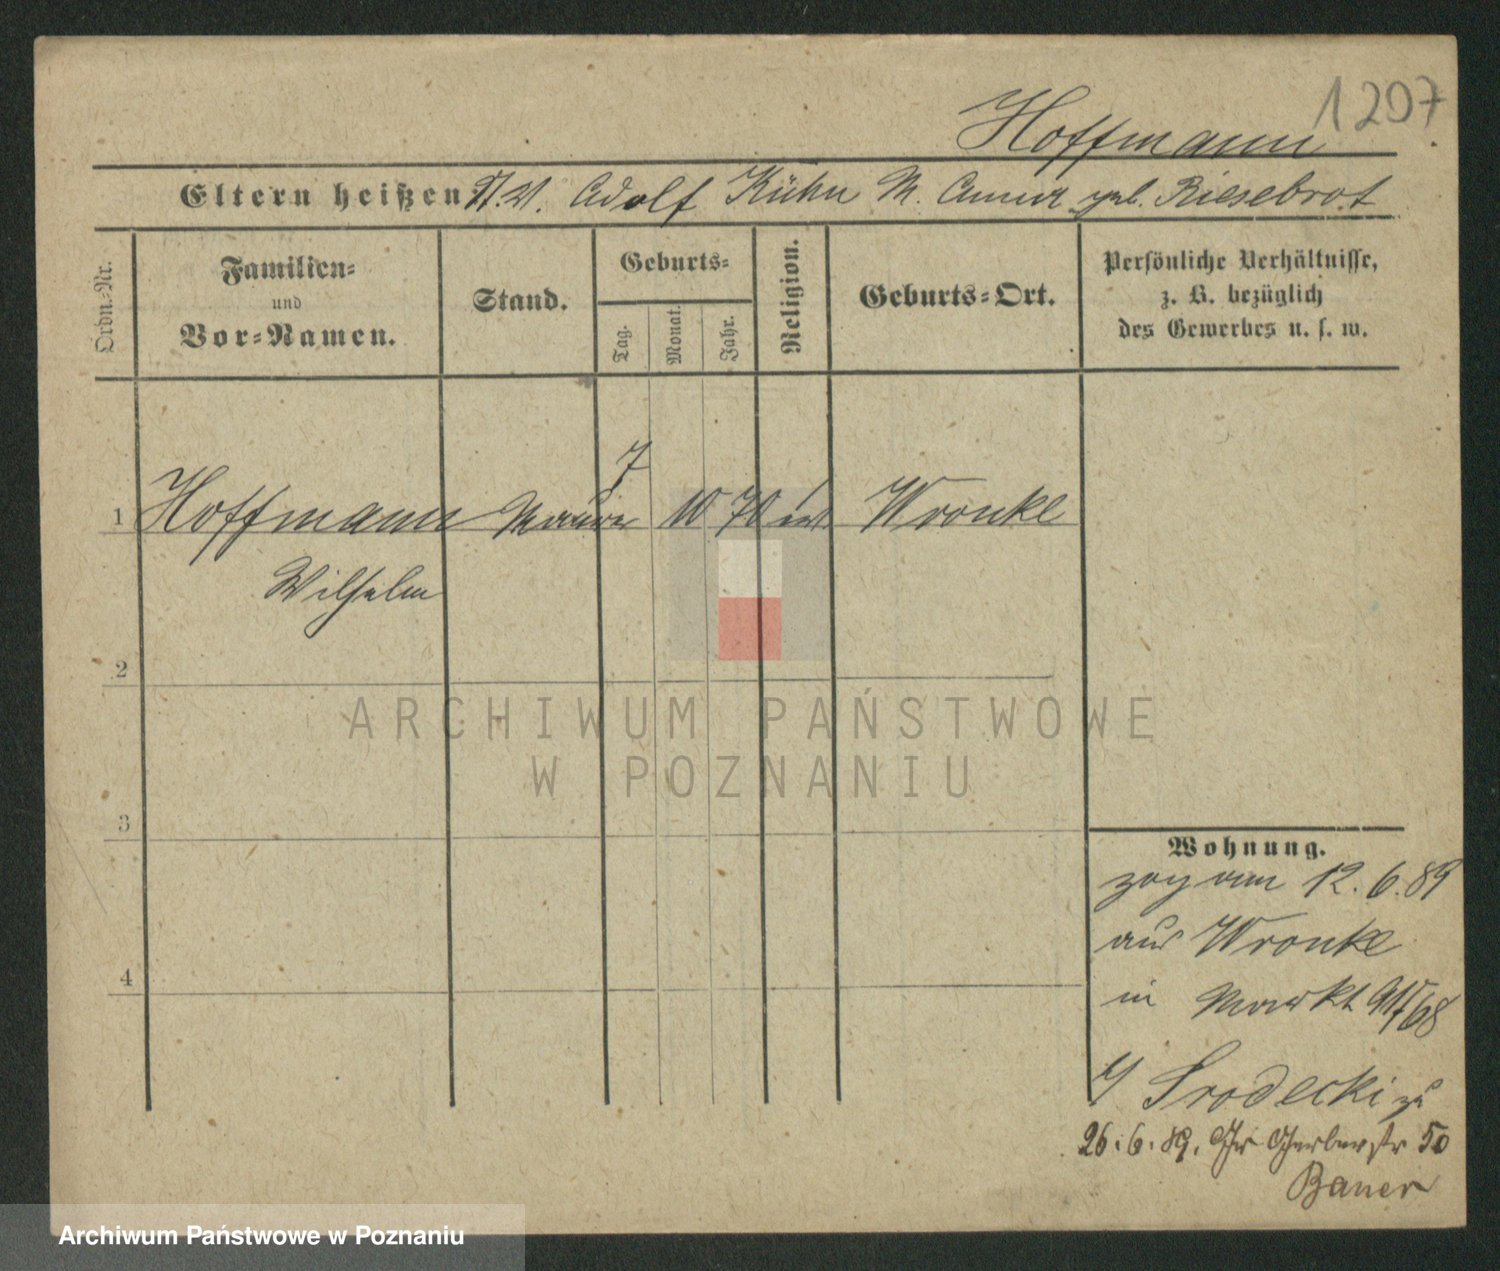 1207
Hoffmann
Eltern heißen: Adolf Kühn M. Anna geb. Riesebrot
Ordn.-Nr.
Familien-
und
Vor-Namen.
Stand.
Geburts-
Tag.
Monat.
Jahr.
Religion.
Geburts-Ort.
Persönliche Verhältnisse,
z. B. bezüglich
des Gewerbes u. s. w.
7
1 Hoffmann Maurer 10 70 Wronke
Wilhelm
2
ARCHIWUM PAŃSTWOWE
W POZNANIU
3
Wohnung.
zog am 12.6.89
aus Wronke
in Markt 67/68
Srodecki zu
26.6.89. Gr Gerberstr 50
Bauer
4
Archiwum Państwowe w Poznaniu